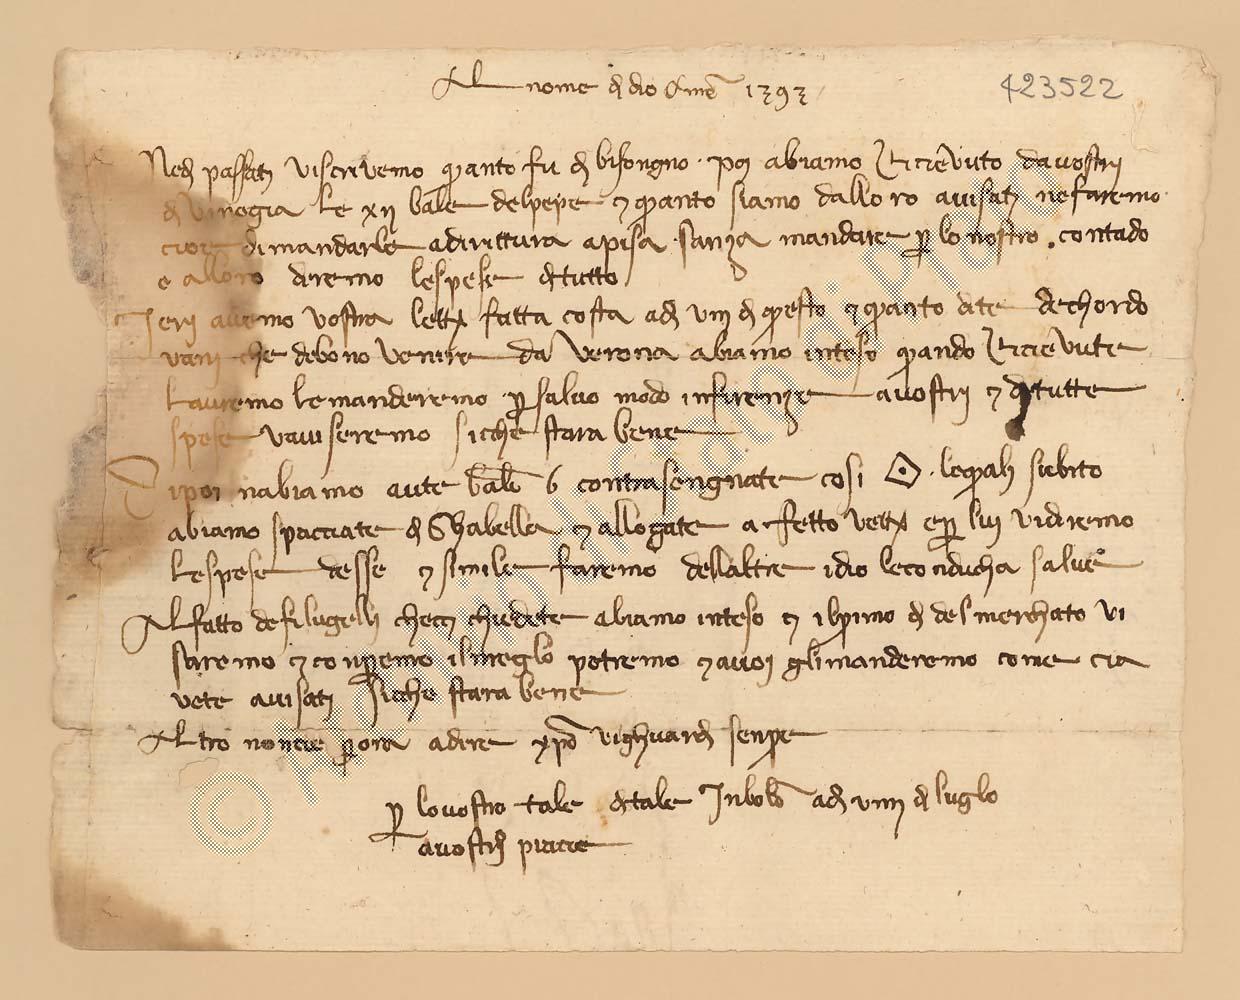 Al nome di dio Amen 1393
423522
Nedi passati vi scrivemo quanto fu di bisongno poi abiamo ricievuto da vostri
di vinegia le xii balle del pepe e quanto siamo dalloro avisati ne faremo
cioe di mandarle a dirittura a pisa sanza mandare per lo nostro contado
e alloro diremo le spese di tutto
Ieri avemo vostra lettera fatta costa a di viii di questo e quanto dite de chordo
vani che debono venire da verona abiamo inteso quando ricievute
lavremo le manderemo per salvo modo in firenze a vostri e di tutte
spese vaviseremo sicche stara bene
Di poi nabiamo aute balle 6 contrasengnate cosi le quali subito
abiamo spacciate di ghabella e allogate a vetturale e per lui vi diremo
le spese desse e simile faremo dellaltre idio le conducha salve
Al fatto de filugelli checci chiedete abiamo inteso e il primo di del merchato vi
saremo e conprremo il meglo potremo e a voi gli manderemo come cia
vete avisati sicche stara bene
Altro non cie per ora a dire xpo vi ghuardi senpre
per lo vostro tale di tale In bolongna a di viiii di luglo
a vostri piacieri